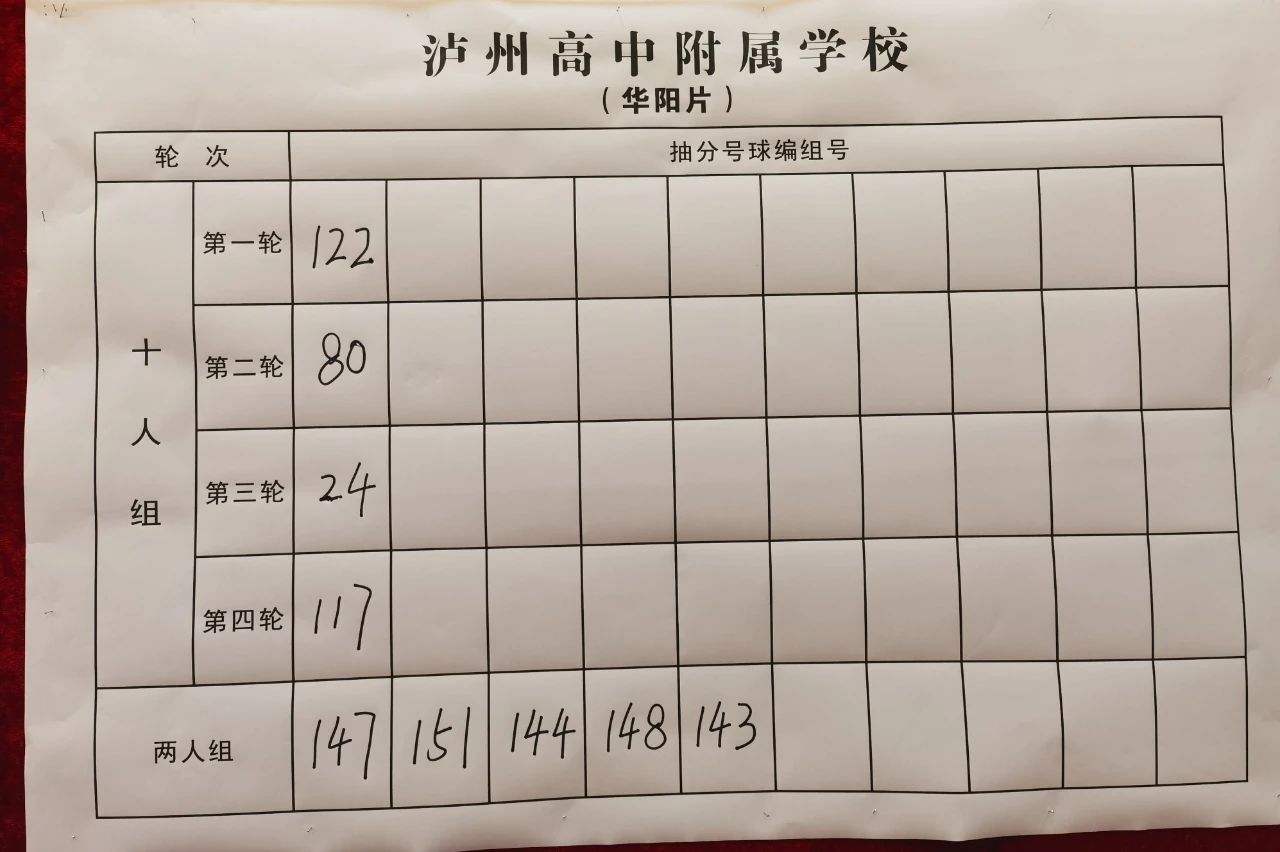 泸州高中附属学校
（华阳片）
轮 次 抽分号球编组号
十人组
第一轮 122
第二轮 80
第三轮 24
第四轮 117
两人组 147 151 144 148 143